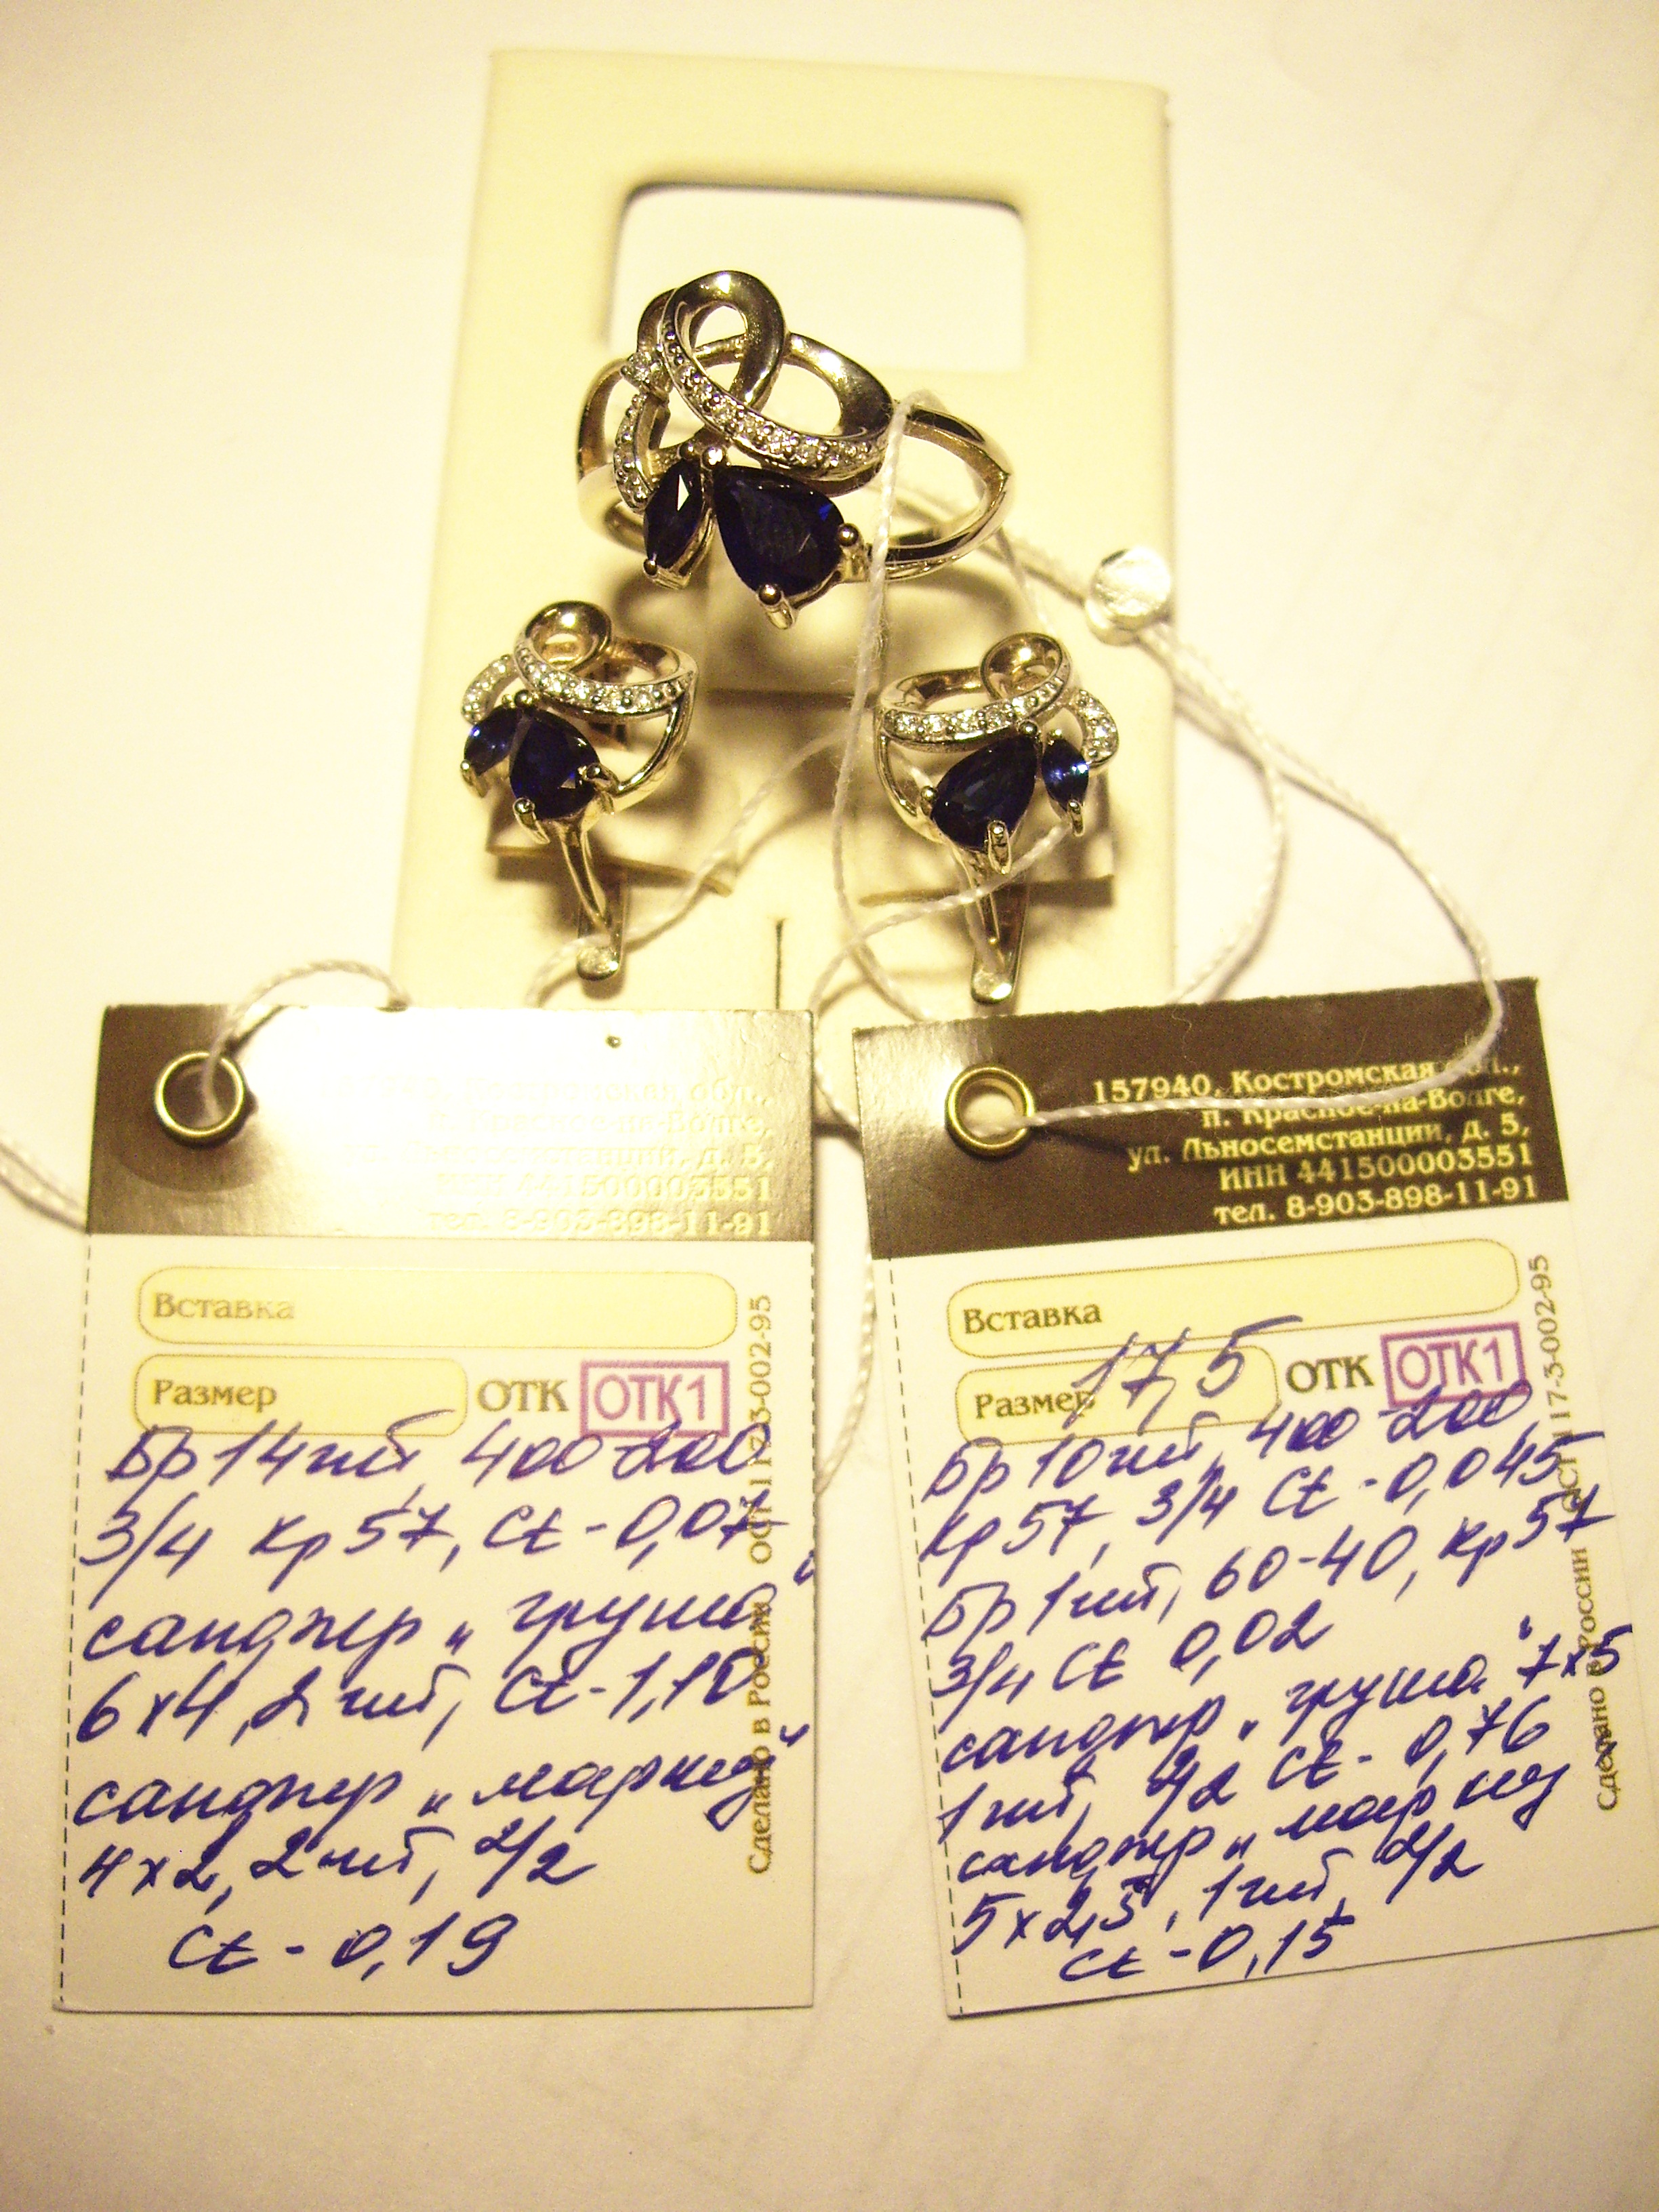 157940, Костромская обл.,
п. Красное-на-Волге,
ул. Льносемстанции, д. 5,
ИНН 441500003551
тел. 8-903-898-11-91
Вставка
Размер ОТК ОТК1
Бр 14шт, 400-200
3/4 Кр 57, Ct - 0,07
сапфир „груша"
6х4, 2 шт, Ct - 1,10
сапфир „маркиз"
4х2, 2 шт, 2/2
Ct - 0,19
Сделано в России ОСТ 117-3-002-95
157940, Костромская обл.,
п. Красное-на-Волге,
ул. Льносемстанции, д. 5,
ИНН 441500003551
тел. 8-903-898-11-91
Вставка
Размер 17,5 ОТК ОТК1
Бр 10шт, 400-200
Кр 57, 3/4 Ct - 0,045
Бр 1 шт, 60-40, Кр 57
3/4 Ct 0,02
сапфир „груша" 7х5
1 шт, 2/2 Ct - 0,76
сапфир „маркиз
5х2,5, 1 шт, 2/2
Ct - 0,15
Сделано в России ОСТ 117-3-002-95